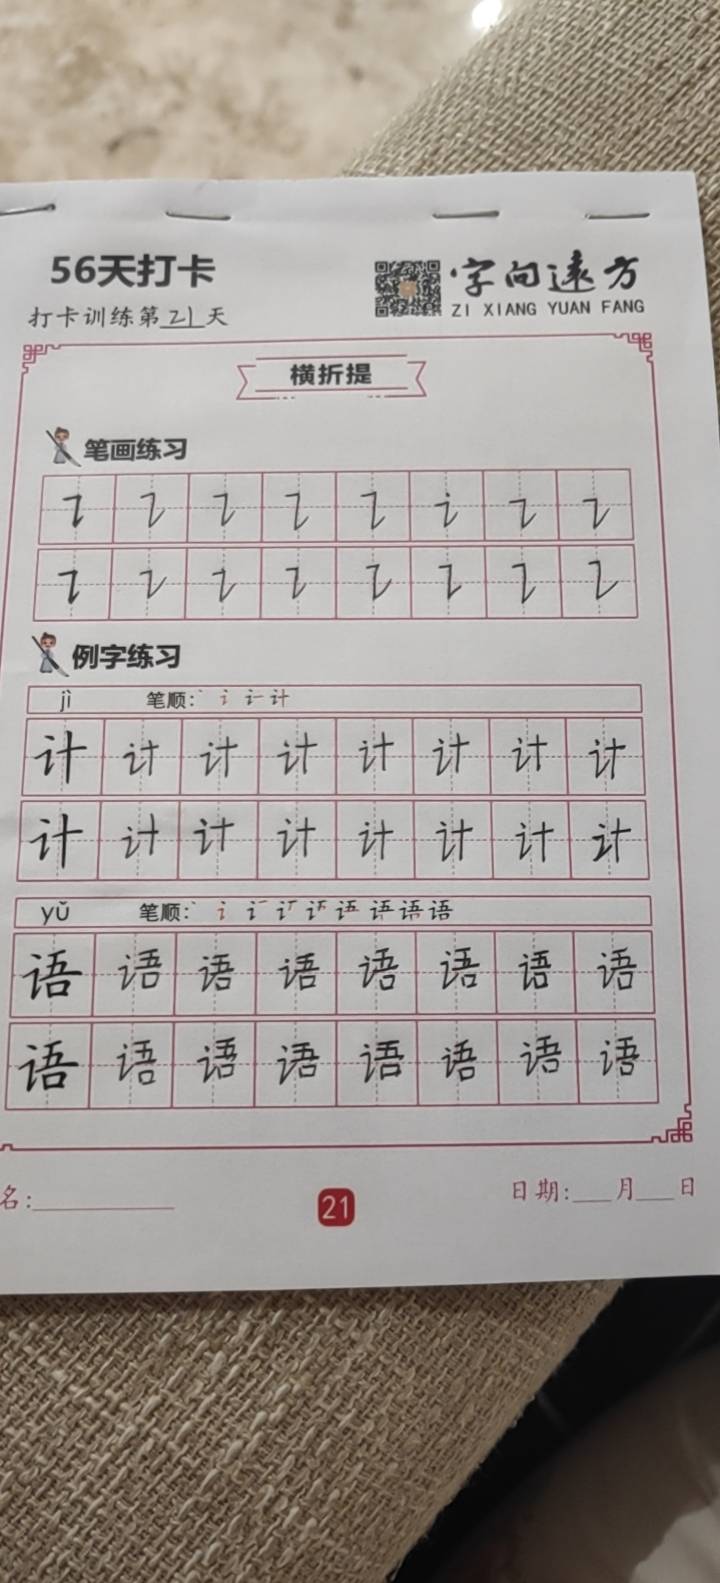 56天打卡
字向远方
ZI XIANG YUAN FANG
打卡训练第21天
横折提
笔画练习
例字练习
jì 笔顺:
计 计 计 计 计 计 计 计
计 计 计 计 计 计 计 计
yǔ 笔顺: 语
语 语 语 语 语 语 语 语
语 语 语 语 语 语 语 语
名:
21
日期:___月___日